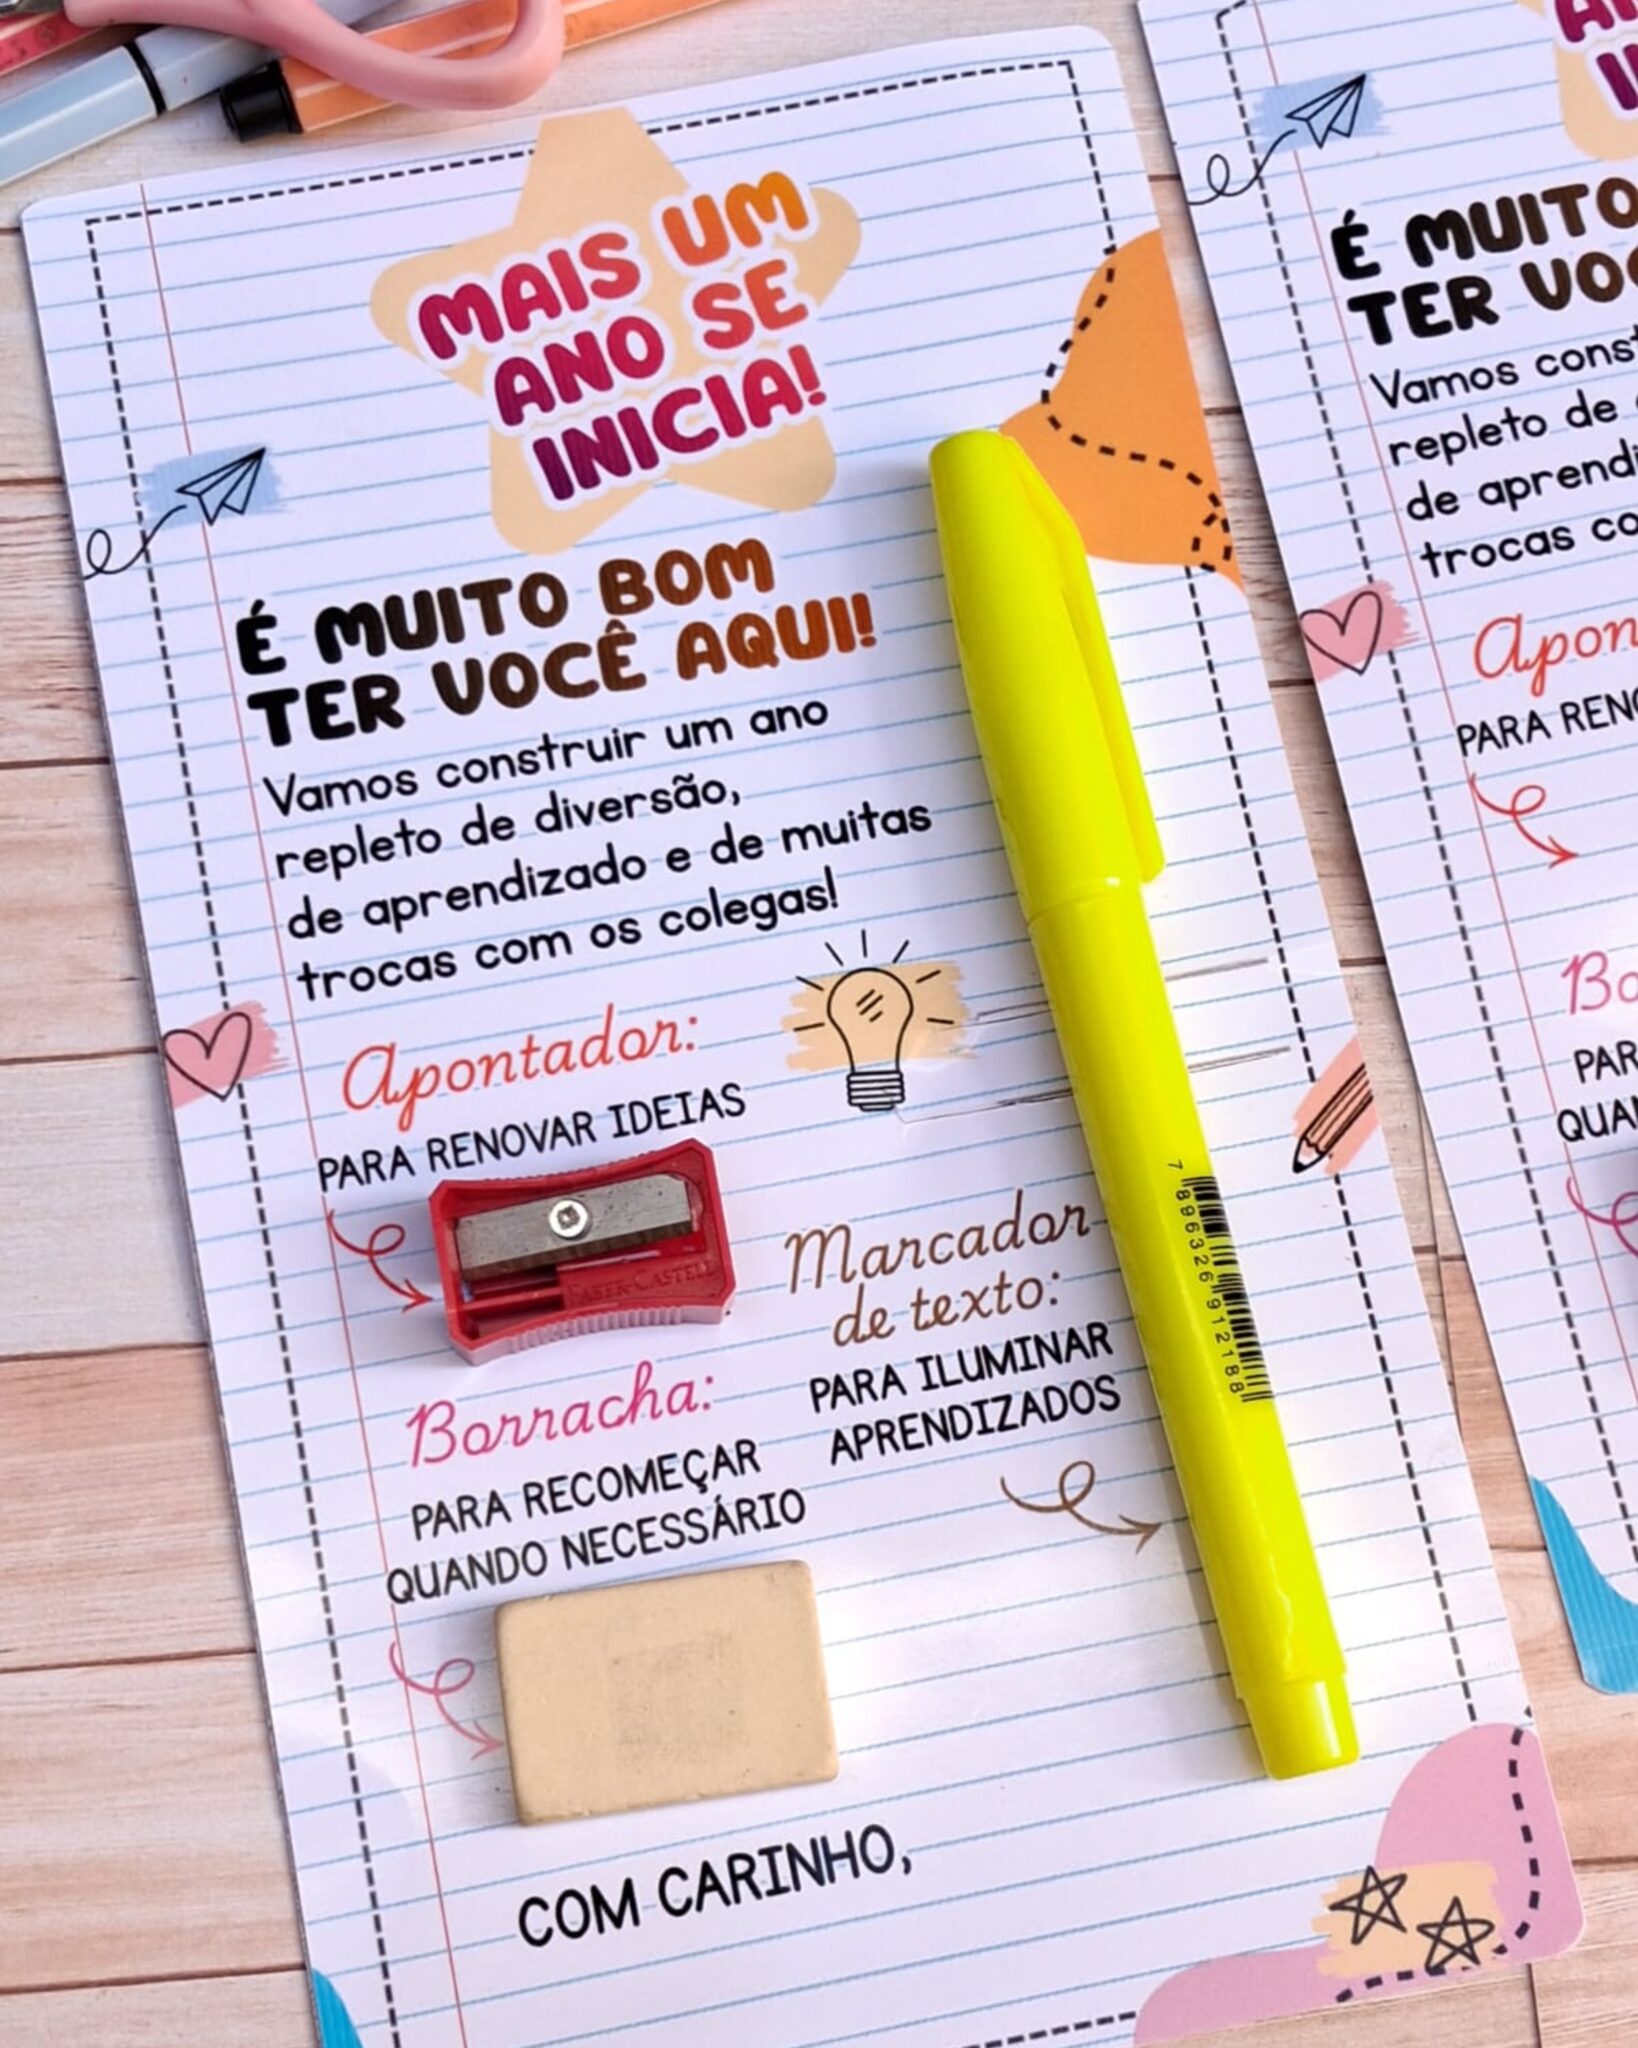 MAIS UM
ANO SE
INICIA!
É MUITO BOM
TER VOCÊ AQUI!
Vamos construir um ano
repleto de diversão,
de aprendizado e de muitas
trocas com os colegas!
Apontador:
PARA RENOVAR IDEIAS
FABER-CASTELL
Marcador
de texto:
PARA ILUMINAR
APRENDIZADOS
7 896326 912188
Borracha:
PARA RECOMEÇAR
QUANDO NECESSÁRIO
COM CARINHO,
É MUITO
TER VOC
Vamos const
repleto de
de aprendi
trocas co
Apon
PARA RENO
Bo
PAR
QUAN